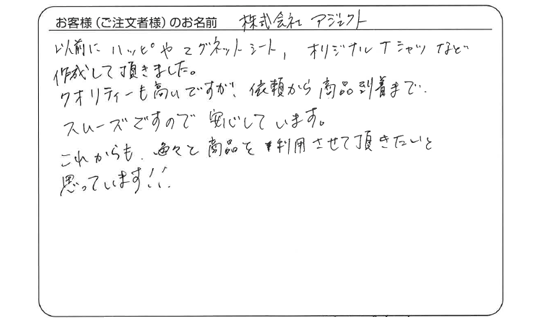 お客様(ご注文者様)のお名前 株式会社 アジェクト
以前に ハッピやマグネットシート, オリジナルTシャツなど
作成して頂きました。
クオリティーも高いですが、依頼から商品到着まで、
スムーズですので 安心しています。
これからも、色々と商品を利用させて頂きたいと
思っています!!